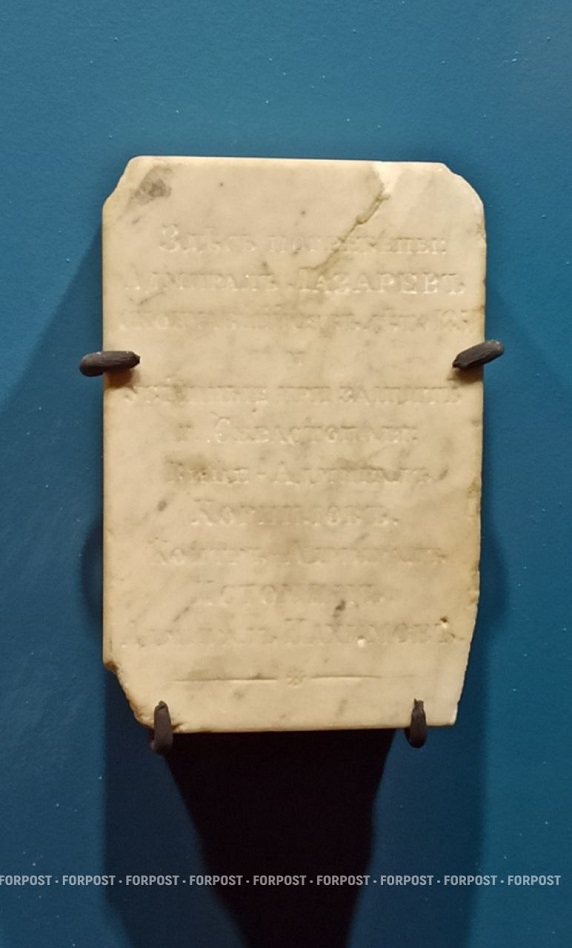 Здѣсь погребены
Адмиралъ Лазаревъ
и
при защитѣ
г. Севастополя:
Вице-Адмиралъ
Корниловъ.
Контръ-Адмиралъ
Истоминъ.
Адмиралъ Нахимовъ.
FORPOST · FORPOST · FORPOST · FORPOST · FORPOST · FORPOST · FORPOST · FORPOST · FORPOST